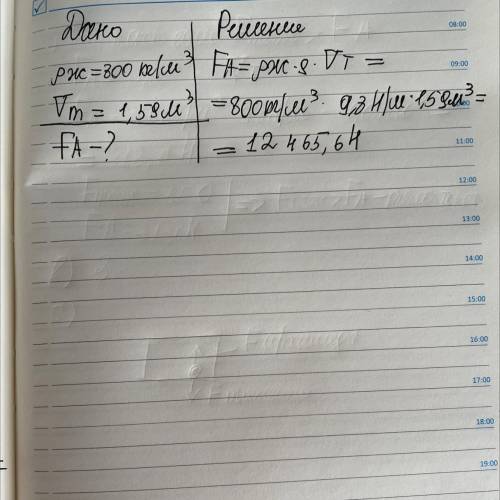 Дано
Решение
ρж=800 кг/м³
FA=ρж·g·VT=
Vт = 1,59м³
=800кг/м³· 9,8Н/м·1,59м³=
FA-?
= 12 465,6Н
08:00
09:00
11:00
12:00
13:00
14:00
15:00
16:00
17:00
18:00
19:00